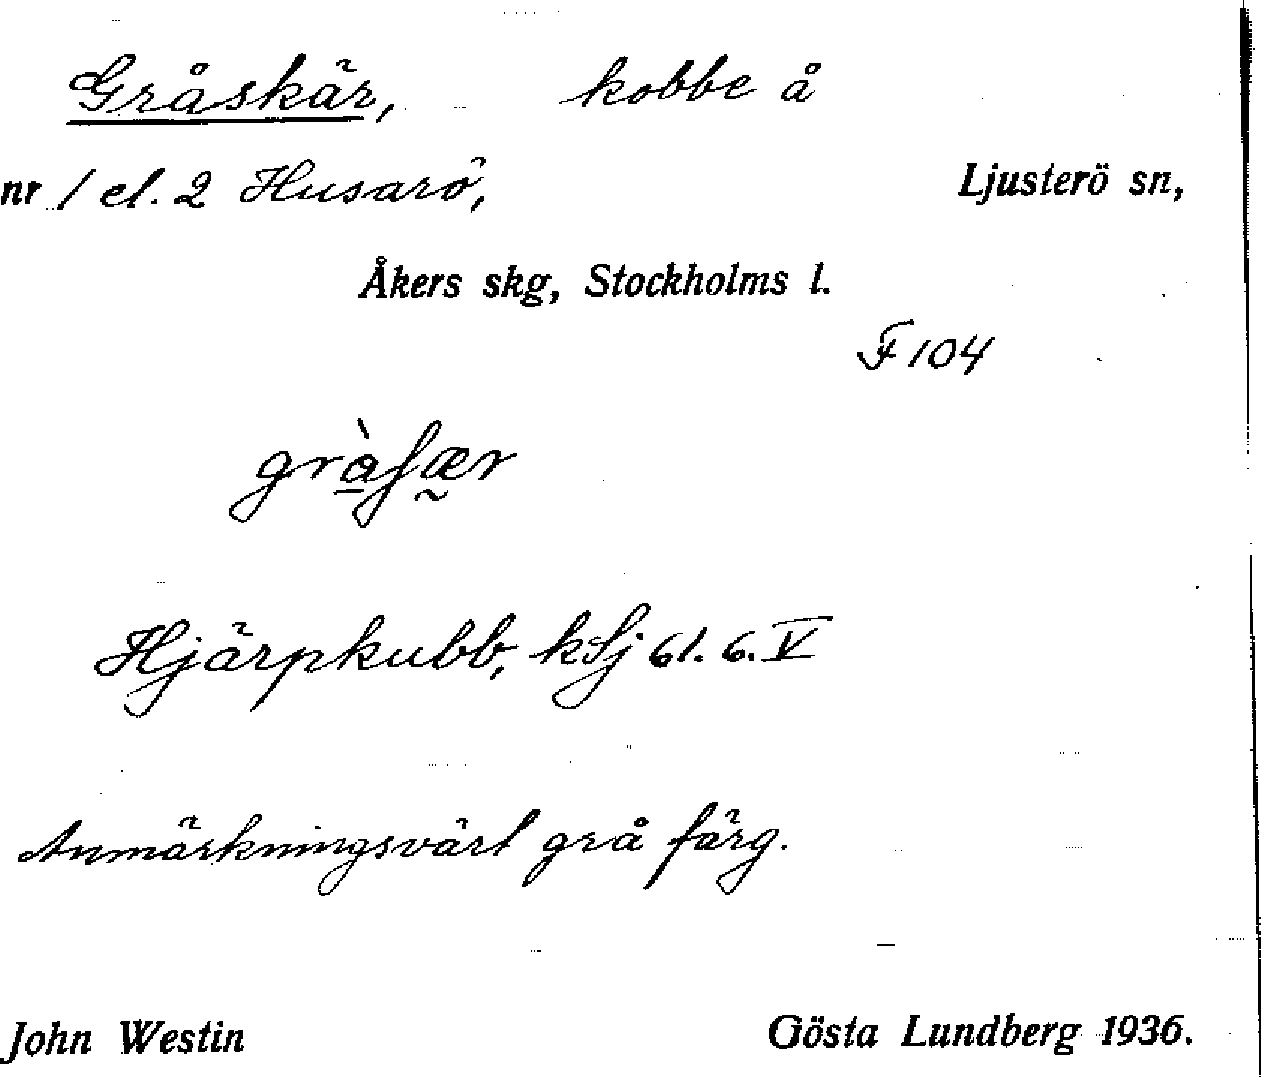 Gråskär, kobbe å
nr 1 el. 2 Husarö, Ljusterö sn,
Åkers skg, Stockholms l.
F 104
Hjärpkubb, kSj 61. 6. V
Anmärkningsvärt grå färg.
John Westin Gösta Lundberg 1936.